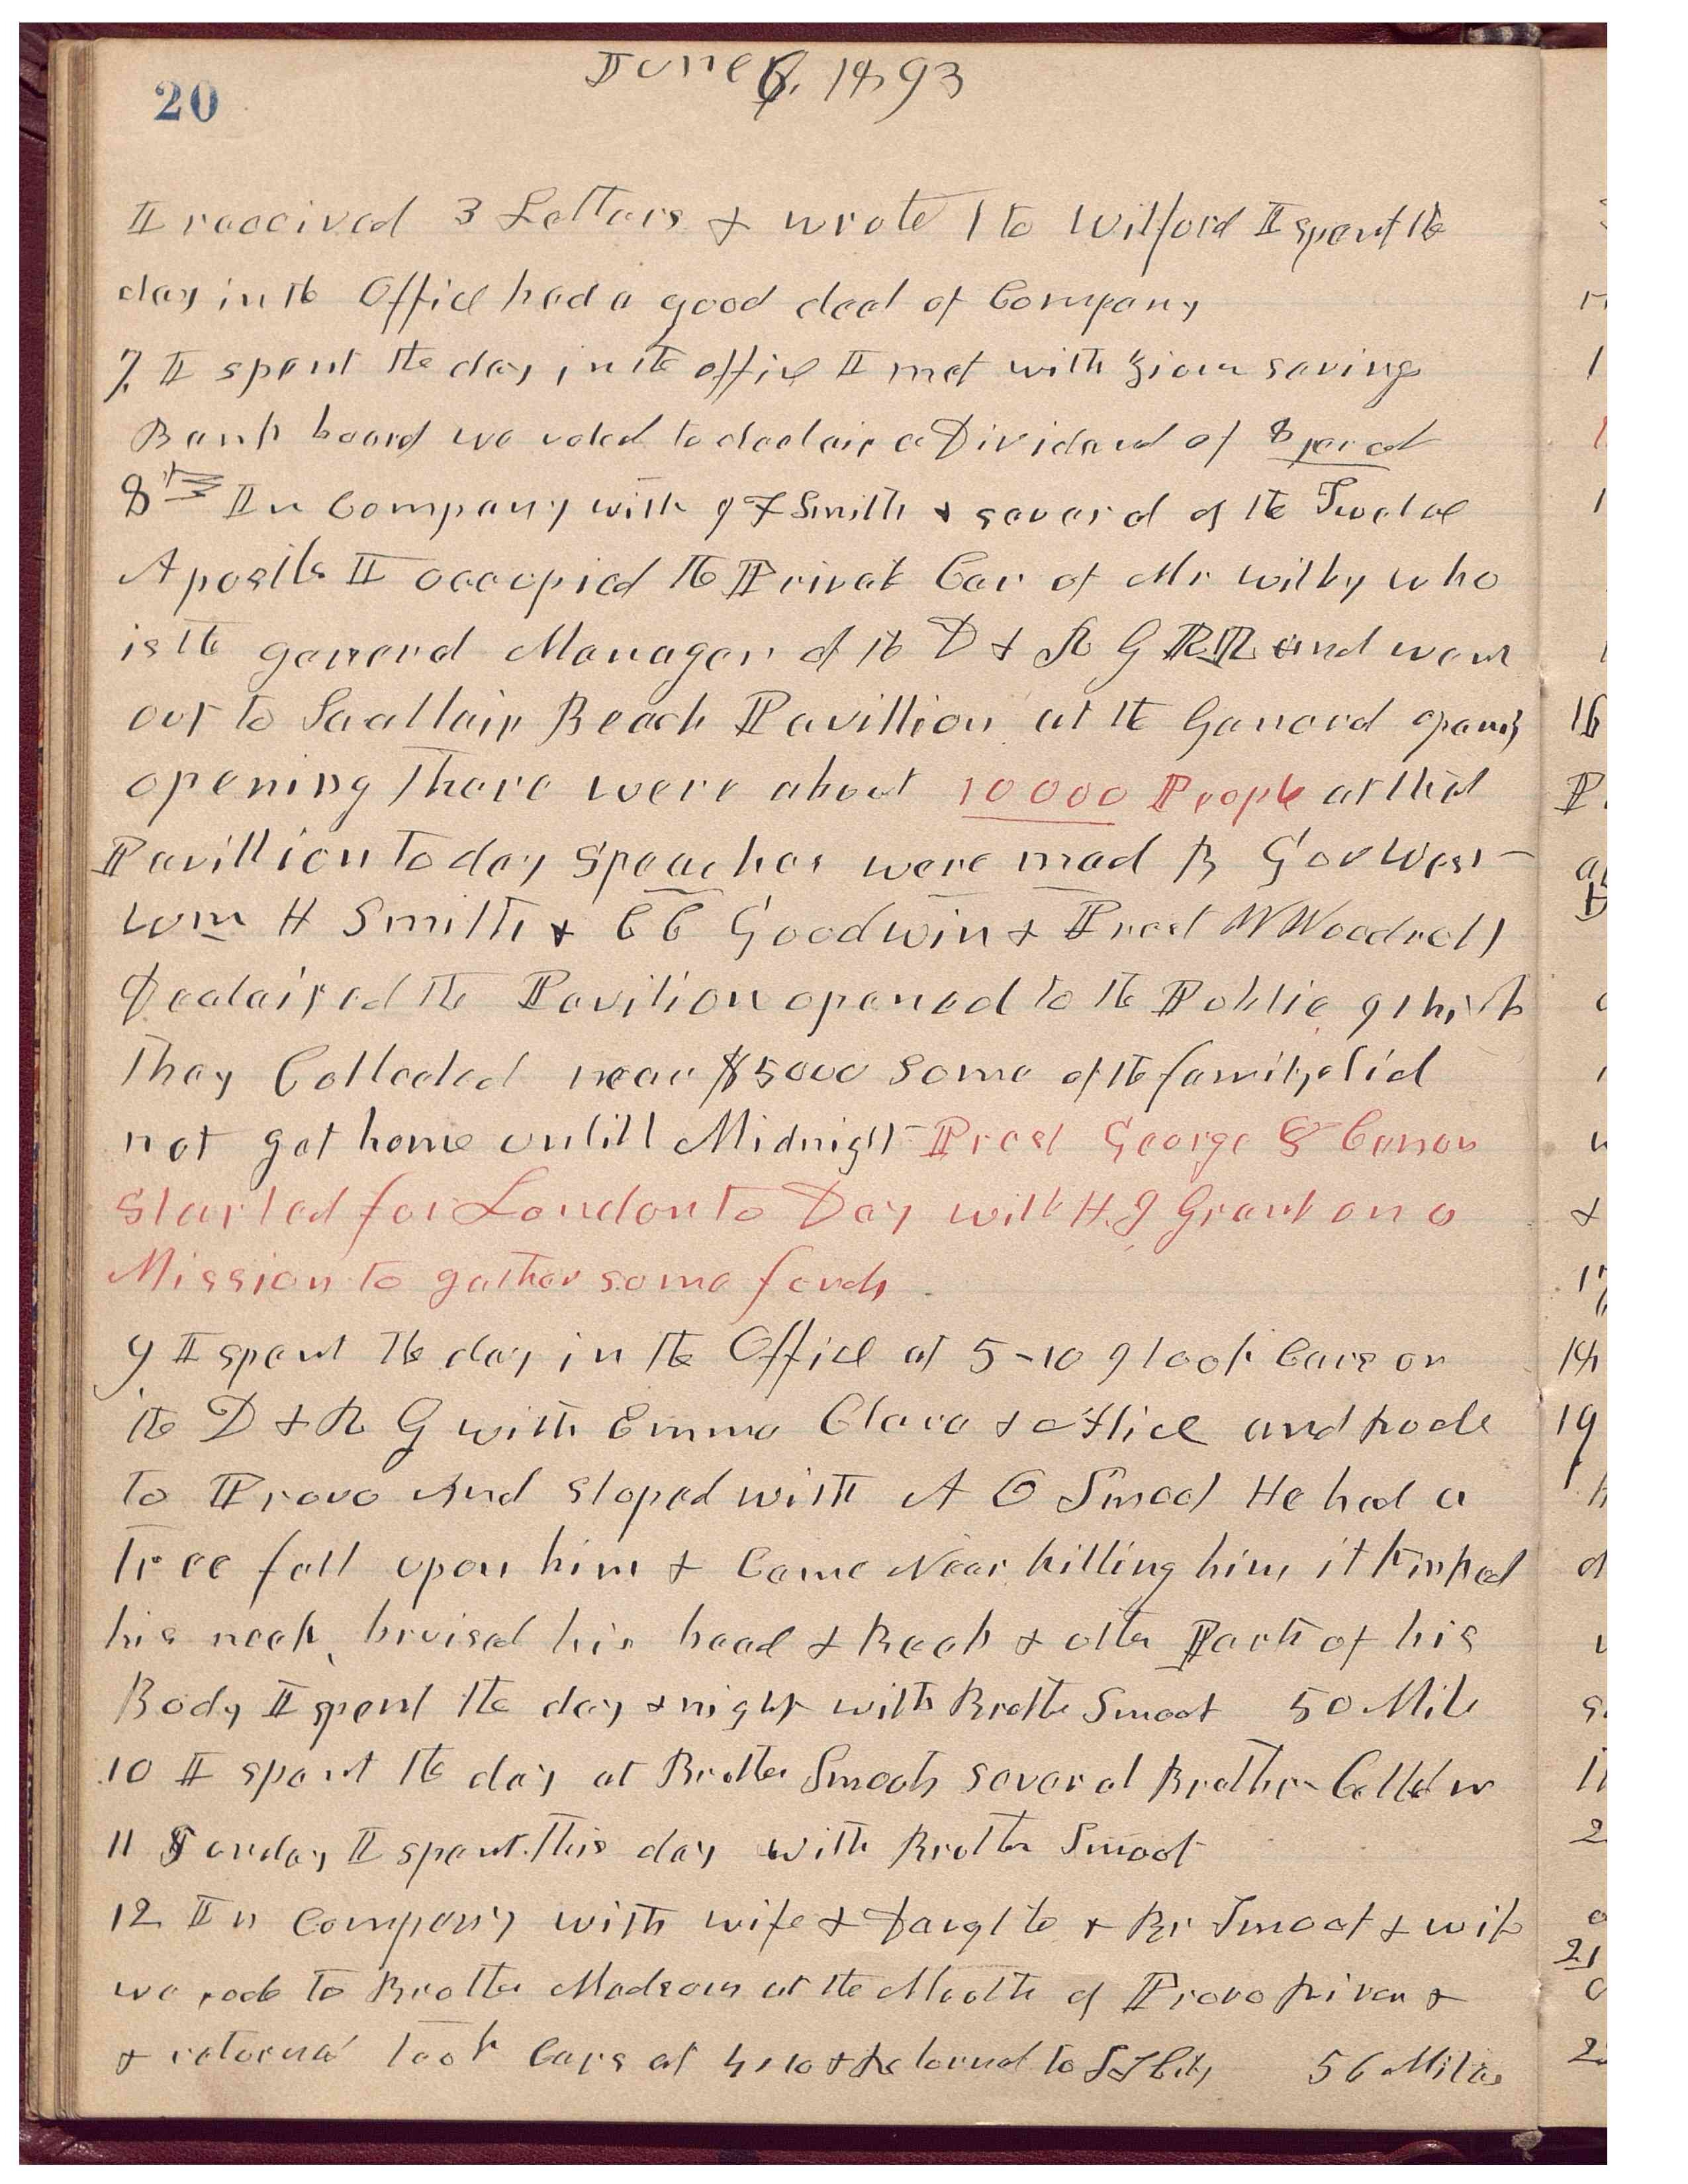 20
June 6, 1893
I received 3 Letters & wrote 1 to Wilford I spent the
day in the Office had a good deal of Company
7, I spent the day in the offic I met with Zion saving
Bank board we voted to declair a Dividend of 8 per ct
8th In Company with J F Smith & several of the Twelve
Apostls I occopied the Privat Car of Mr Wilby who
is the general Manager of the D & R G RR and went
out to Saltair Beach Pavillion at the General
opening There were about 10000 People at that
Pavillion To day Speaches were mad By Gov West
Wm H Smith & C C Goodwin & Prest W Woodruff
Declaired the Pavilion opened to the Public I think
They Collected near $5000 Some of the family did
not get home untill Midnight Prest George Q Canon
Started for London to Day with H. J Grant on a
Mission to gather some funds
9 I spent the day in the Office at 5-10 I took Cars on
the D & R G with Emma Clara & Alice and Rode
to Provo And stoped with A O Smoot He had a
Tree fall upon him & Came Near killing him it kinked
his neck, bruised his head & Back & other Parts of his
Body I spent the day & night with Brother Smoot 50 Mile
10 I spent the day at Brother Smoots several Brethren Called
11 Sunday I spent This day with Brother Smoot
12 In Company with wife & Daughte & Br Smoot & wife
we rode to Brother Madsons at the Mouth of Provo River &
& returnd took Cars at 4,10 & Returned to S L City 56 Miles